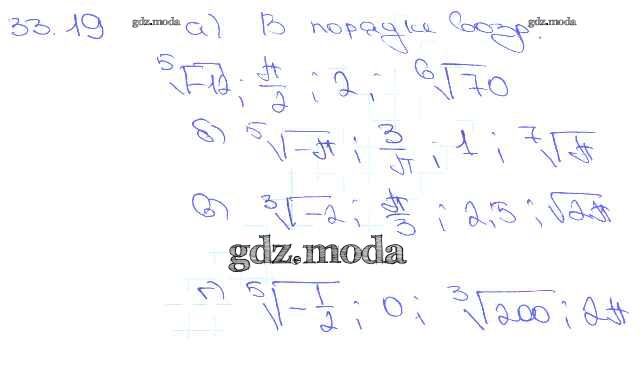 33.19 gdz.moda а) В порядке возр. gdz.moda
⁵√-12; π/2; 2; ⁶√70
б) ⁵√-π; 3/π; 1; ⁷√π
в) ³√-2; π/3; 2,5; √2π
gdz.moda
г) ⁵√-1/2; 0; ³√200; 2π